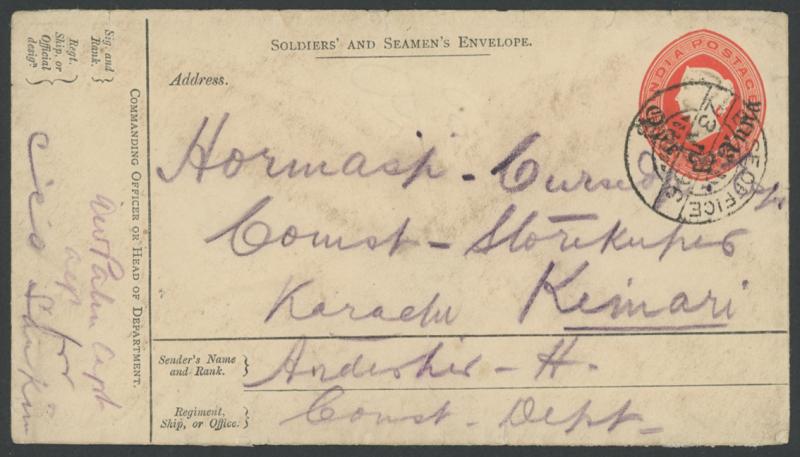 SOLDIERS' AND SEAMEN'S ENVELOPE.
INDIA POSTAGE
OFFICE
Address.
Hormasji - Cursetji
Comst - Storekeeper
Karachi Kemari
Sender's Name and Rank.
Ardeshir - H.
Regiment, Ship, or Office.
Comst - Dept -
Sig. and Rank.
Regt. Ship, or Official desigⁿ.
COMMANDING OFFICER OR HEAD OF DEPARTMENT.
Capt
for